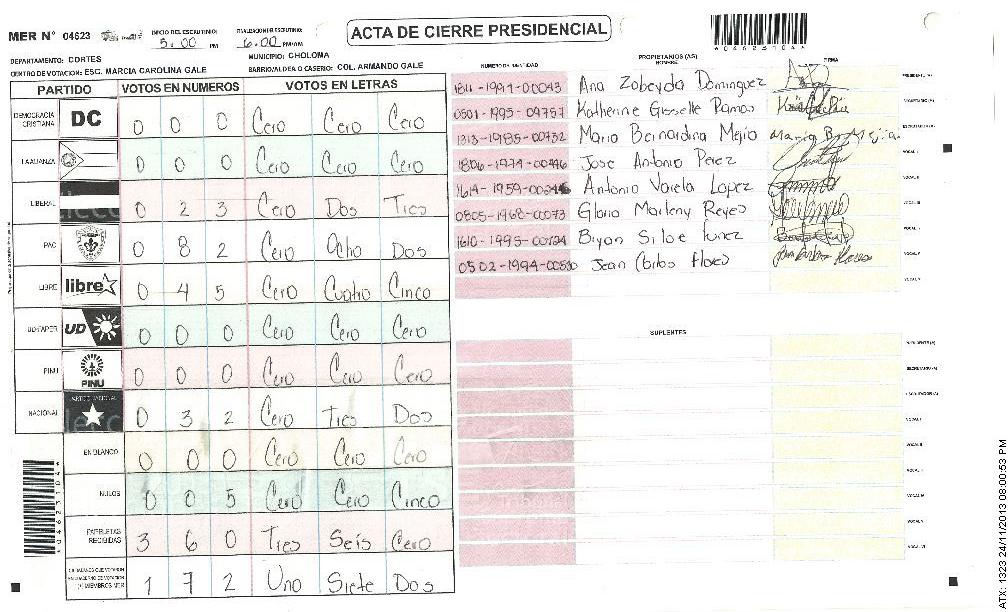 MER N° 04623
INICIO DEL ESCRUTINIO: 5:00 PM
FINALIZACION ESCRUTINIO: 6:00 PM/AM
ACTA DE CIERRE PRESIDENCIAL
DEPARTAMENTO: CORTES
MUNICIPIO: CHOLOMA
CENTRO DE VOTACION: ESC. MARCIA CAROLINA GALE
BARRIO/ALDEA O CASERIO: COL. ARMANDO GALE
PARTIDO VOTOS EN NUMEROS VOTOS EN LETRAS
DEMOCRACIA CRISTIANA DC 0 0 0 Cero Cero Cero
LA ALIANZA 0 0 0 Cero Cero Cero
LIBERAL 0 2 3 Cero Dos Tres
PAC 0 8 2 Cero Ocho Dos
LIBRE libre 0 4 5 Cero Cuatro Cinco
UD-FAPER UD 0 0 0 Cero Cero Cero
PINU PINU 0 0 0 Cero Cero Cero
NACIONAL PARTIDO NACIONAL 0 3 2 Cero Tres Dos
EN BLANCO 0 0 0 Cero Cero Cero
NULOS 0 0 5 Cero Cero Cinco
PAPELETAS RECIBIDAS 3 6 0 Tres Seis Cero
CIUDADANOS QUE VOTARON 1 7 2 Uno Siete Dos
PROPIETARIOS (AS)
NUMERO DE IDENTIDAD NOMBRE FIRMA
1811-1991-00043 Ana Zobeyda Dominguez PRESIDENTE (A)
0501-1995-09757 Katherine Gisselle Ramos SECRETARIO (A)
1313-1985-00732 Maria Bernardina Mejia Maria B. Mejia ESCRUTADOR (A)
1806-1974-00446 Jose Antonio Perez VOCAL I
1614-1959- Antonio Varela Lopez VOCAL II
0805-1968-00073 Gloria Marleny Reyes VOCAL III
1610-1995-00124 Bryan Siloe Funez
0502-1994- Jean Carlos Flores Jean Carlos Flores
SUPLENTES
PRESIDENTE (A)
SECRETARIO (A)
ESCRUTADOR (A)
VOCAL I
VOCAL II
ATX: 1323 24/11/2013 08:00:53 PM